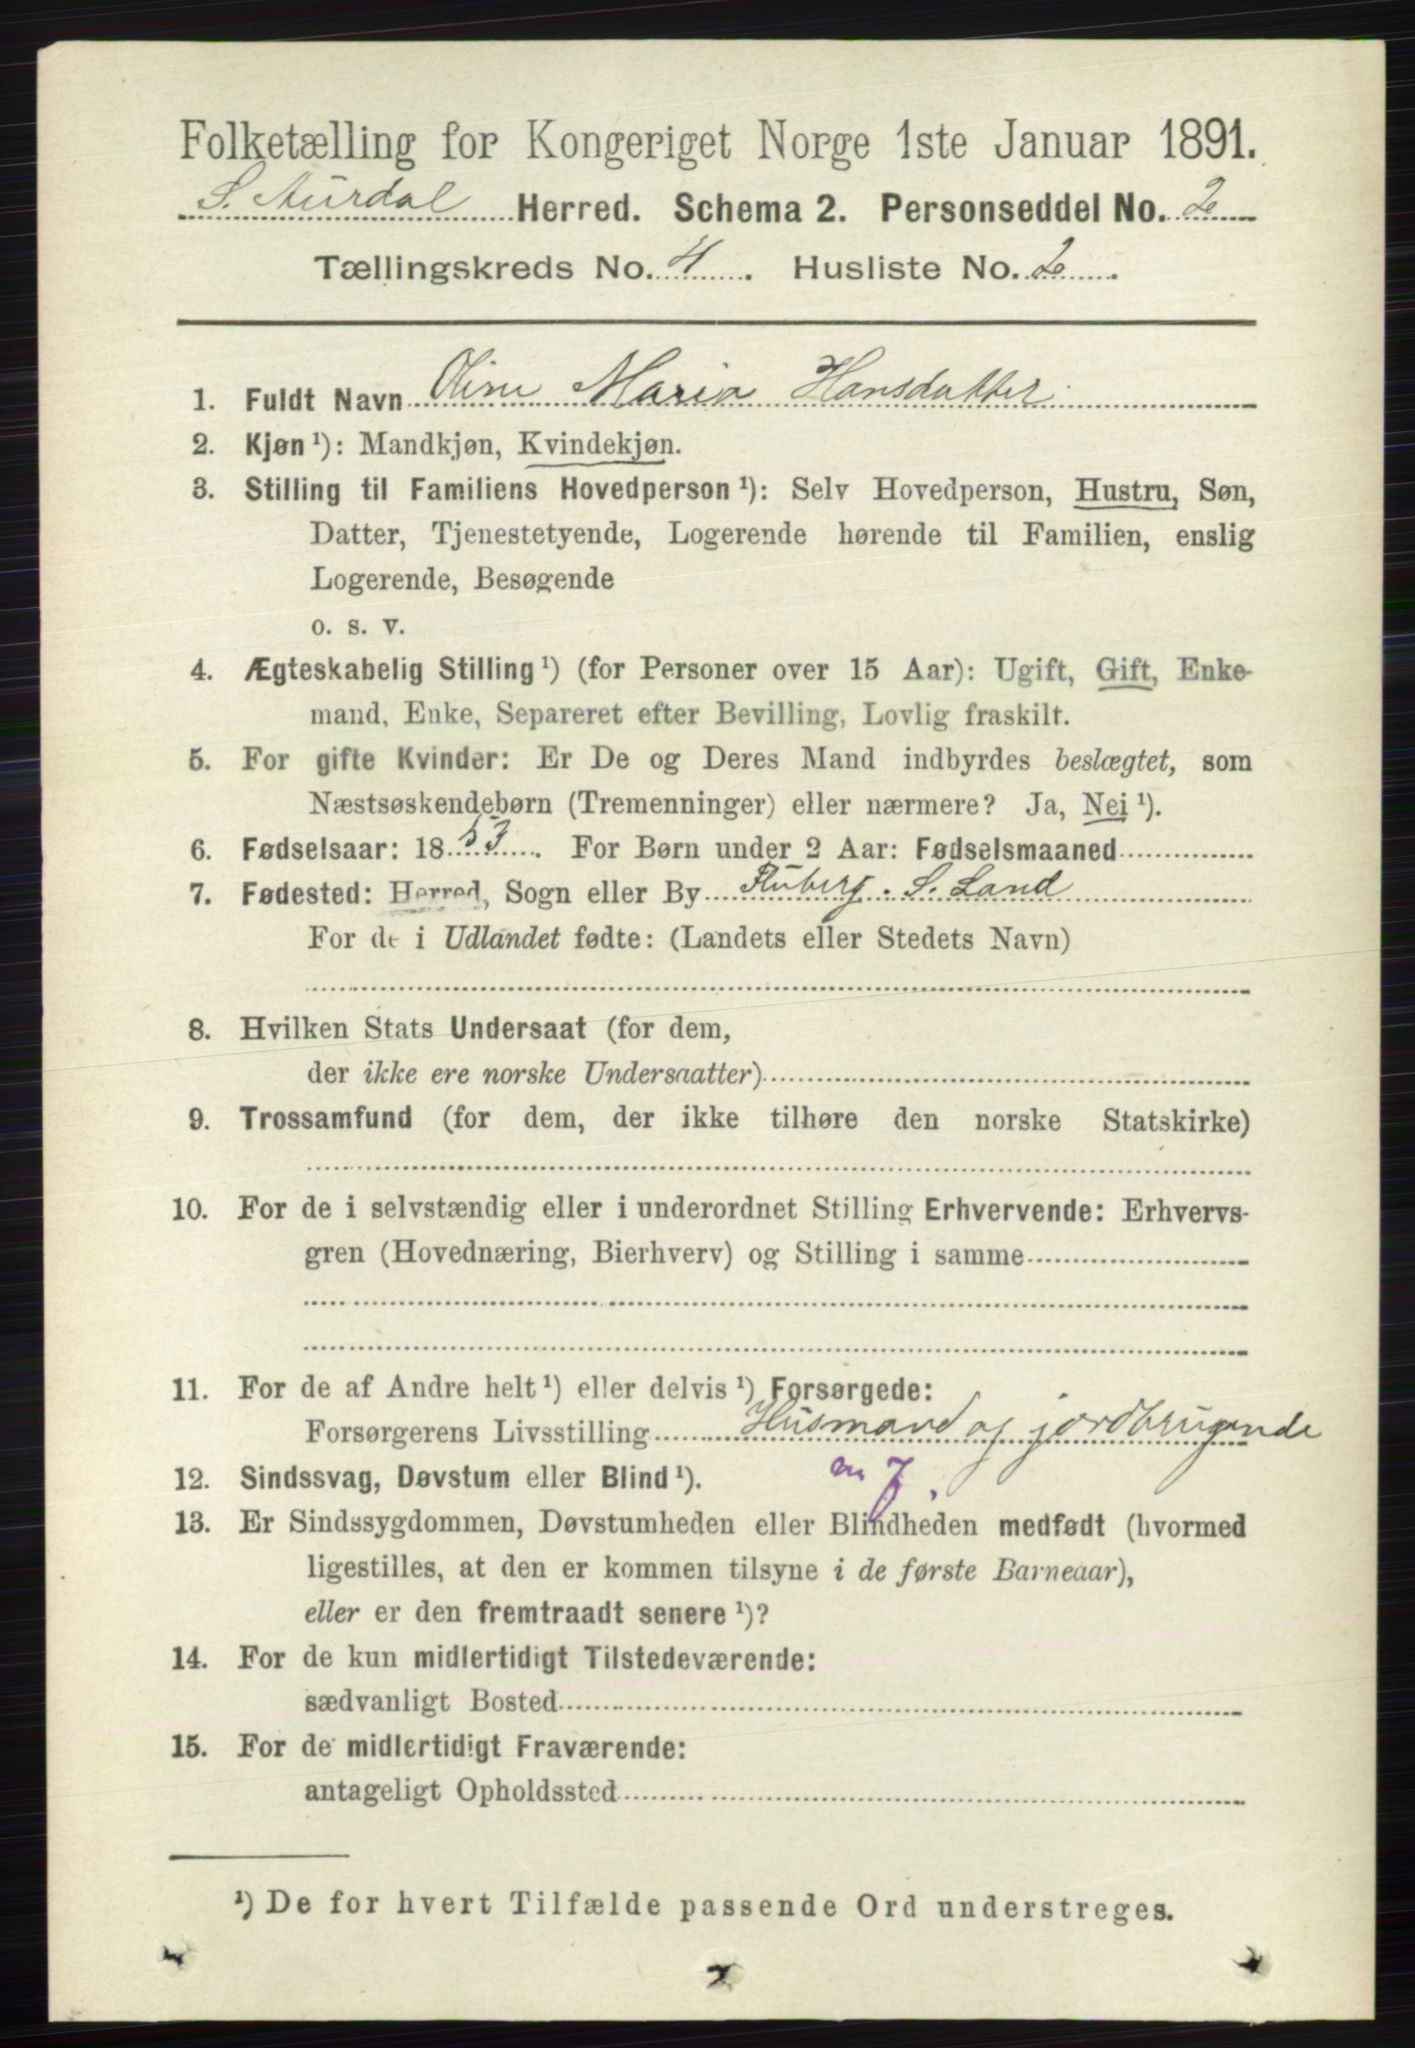 Folketælling for Kongeriget Norge 1ste Januar 1891.
S. Aurdal Herred. Schema 2. Personseddel No. 2
Tællingskreds No. 4. Husliste No. 2.
1. Fuldt Navn Oline Maria Hansdatter
2. Kjøn ¹): Mandkjøn, Kvindekjøn.
3. Stilling til Familiens Hovedperson ¹): Selv Hovedperson, Hustru, Søn,
Datter, Tjenestetyende, Logerende hørende til Familien, enslig
Logerende, Besøgende
o. s. v.
4. Ægteskabelig Stilling ¹) (for Personer over 15 Aar): Ugift, Gift, Enke-
mand, Enke, Separeret efter Bevilling, Lovlig fraskilt.
5. For gifte Kvinder: Er De og Deres Mand indbyrdes beslægtet, som
Næstsøskendebørn (Tremenninger) eller nærmere? Ja, Nei ¹).
6. Fødselsaar: 1853. For Børn under 2 Aar: Fødselsmaaned
7. Fødested: Herred, Sogn eller By Fluberg. S. Land
For de i Udlandet fødte: (Landets eller Stedets Navn)
8. Hvilken Stats Undersaat (for dem,
der ikke ere norske Undersaatter)
9. Trossamfund (for dem, der ikke tilhøre den norske Statskirke)
10. For de i selvstændig eller i underordnet Stilling Erhvervende: Erhvervs-
gren (Hovednæring, Bierhverv) og Stilling i samme
11. For de af Andre helt ¹) eller delvis ¹) Forsørgede:
Forsørgerens Livsstilling Husmand og jordbrugende
12. Sindssvag, Døvstum eller Blind ¹).
13. Er Sindssygdommen, Døvstumheden eller Blindheden medfødt (hvormed
ligestilles, at den er kommen tilsyne i de første Barneaar),
eller er den fremtraadt senere ¹)?
14. For de kun midlertidigt Tilstedeværende:
sædvanligt Bosted
15. For de midlertidigt Fraværende:
antageligt Opholdssted
¹) De for hvert Tilfælde passende Ord understreges.